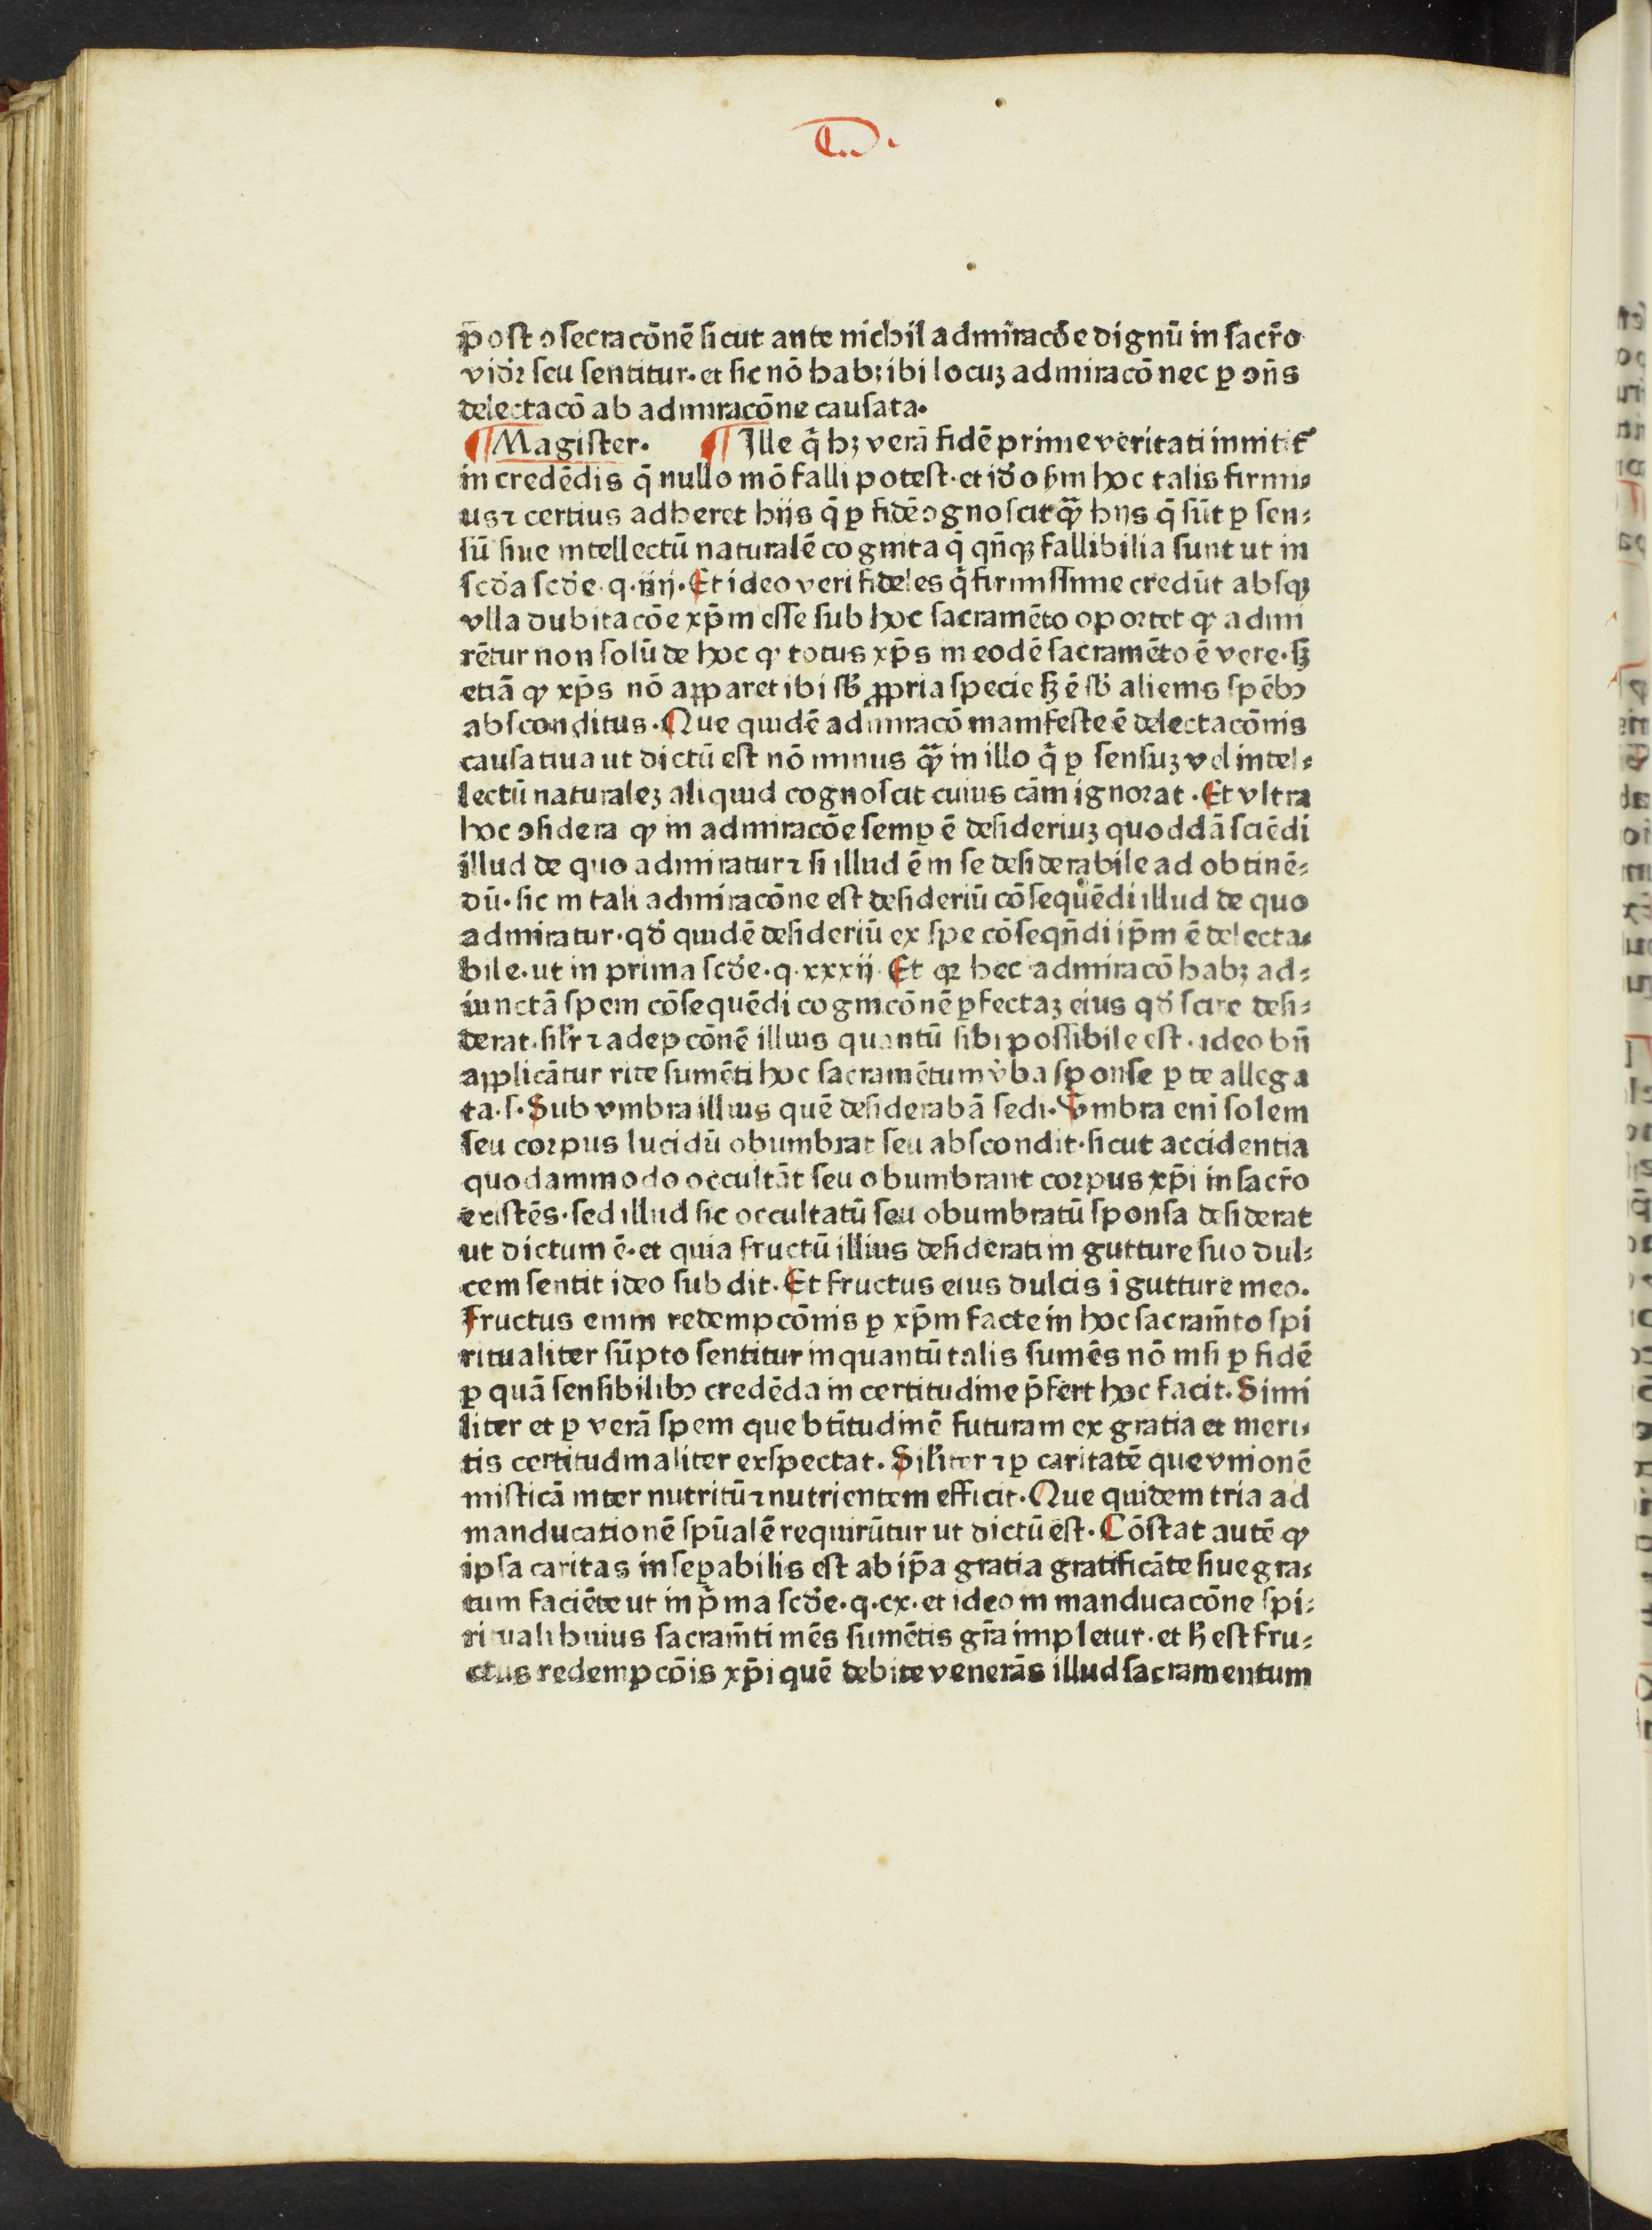 post ↄſecracōnē ſicut ante nichil admiracōe dignū in ſacr̄o
vidꝛ̄ ſeu ſentitur· et ſic nō habꝫ ibi locuꝫ admiracō nec ꝑ ↄn̄s
delectacō ab admiracōne cauſata·
¶ Magiſter· ¶ Ille q̄ hꝫ verā fidē prime veritati innitit᷑
in credēdis q̄ nullo mō falli poteſt· et iđo ẜm hoc talis firmi⸗
us ⁊ certius adheret hijs q̄ ꝑ fidē ↄgnoſcit qͣꝫ hijs q̄ ſūt ꝑ ſen⸗
ſū ſiue intellectū naturalē cognita q̄ qn̄qꝫ fallibilia ſunt ut in
ſcđa ſcđe· q· iiij· Et ideo veri fideles q̄ firmiſſime credūt abſqꝫ
vlla dubitacōe xp̄m eſſe ſub hoc ſacramēto oportet ꝙ admi
rētur non ſolū de hoc ꝙ totus xp̄s in eodē ſacramēto ē vere· ſꝫ
etiā ꝙ xp̄s nō apparet ibi ſb̄ ꝓpria ſpecie ſꝫ ē ſb̄ alienis ſpēbꝰ
abſconditus· Que quidē admiracō manifeſte ē delectacōnis
cauſatiua ut dictū eſt nō minus qͣꝫ in illo q̄ ꝑ ſenſuꝫ vel intel⸗
lectū naturaleꝫ aliquid cognoſcit cuius cām ignorat· Et vltra
hoc ↄſidera ꝙ in admiracōe ſemꝑ ē deſideriuꝫ quoddā ſciēdi
illud de quo admiratur ⁊ ſi illud ē in ſe deſiderabile ad obtinē⸗
dū· ſic in tali admiracōne eſt deſideriū cōſequēdi illud de quo
admiratur· qđ quidē deſideriū ex ſpe cōſeqn̄di ip̄m ē delecta⸗
bile· ut in prima ſcđe· q· xxxij· Et qꝛ hec admiracō habꝫ ad⸗
iunctā ſpem cōſequēdi cognicōnē ꝑfectaꝫ eius qđ ſcire deſi⸗
derat· ſil̄r ⁊ adepcōnē illius quantū ſibi poſſibile eſt· ideo bn̄
applicātur rite ſumēti hoc ſacramētum v̄ba ſponſe ꝑ te allega
ta· ſ· Sub vmbra illius quē deſiderabā ſedi· Vmbra eni ſolem
ſeu corpus lucidū obumbrat ſeu abſcondit· ſicut accidentia
quodammodo occultāt ſeu obumbrant corpus xp̄i in ſacr̄o
exiſtēs· ſed illud ſic occultatū ſeu obumbratū ſponſa deſiderat
ut dictum ē· et quia fructū illius deſiderati in gutture ſuo dul⸗
cem ſentit ideo ſubdit· Et fructus eius dulcis i gutture meo·
Fructus enim redempcōnis ꝑ xp̄m facte in hoc ſacram̄to ſpi
ritualiter ſūpto ſentitur inquantū talis ſumēs nō niſi ꝑ fidē
ꝑ quā ſenſibilibꝰ credēda in certitudine p̄fert hoc facit· Simi
liter et ꝑ verā ſpem que btītudinē futuram ex gratia et meri⸗
tis certitudinaliter exſpectat· Sil̄iter ⁊ ꝑ caritatē que vnionē
miſticā inter nutritū ⁊ nutrientem efficit· Que quidem tria ad
manducationē ſpūalē requirūtur ut dictū eſt· Cōſtat autē ꝙ
ipſa caritas inſeꝑabilis eſt ab ip̄a gratia gratificāte ſiue gra⸗
tum faciēte ut in p̄ma ſcđe· q· cx· et ideo in manducacōne ſpi⸗
rituali huius ſacram̄ti mēs ſumētis gr̄a impletur· et h̄ eſt fru⸗
ctus redempcōis xp̄i quē debite venerās illud ſacramentum